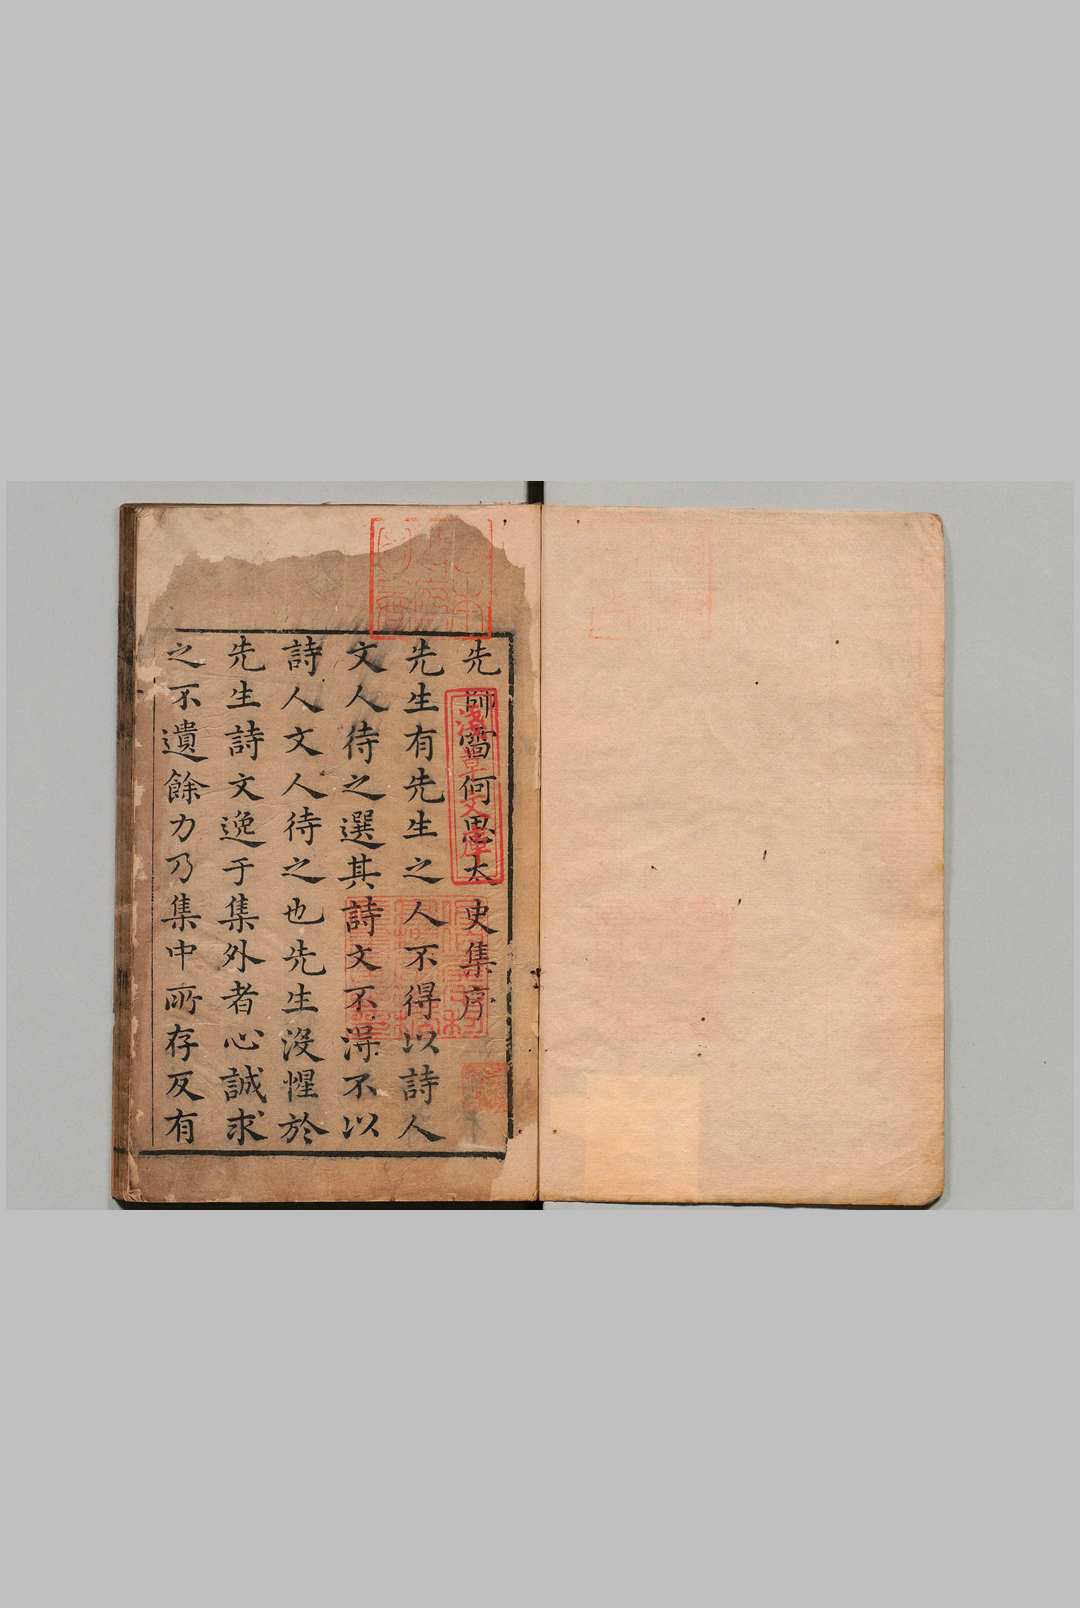 先師雷何思太史集序
先生有先生之人不得以詩人
文人待之選其詩文不得不以
詩人文人待之也先生沒惺於
先生詩文逸于集外者心誠求
之不遺餘力乃集中所存反有
淺草文庫